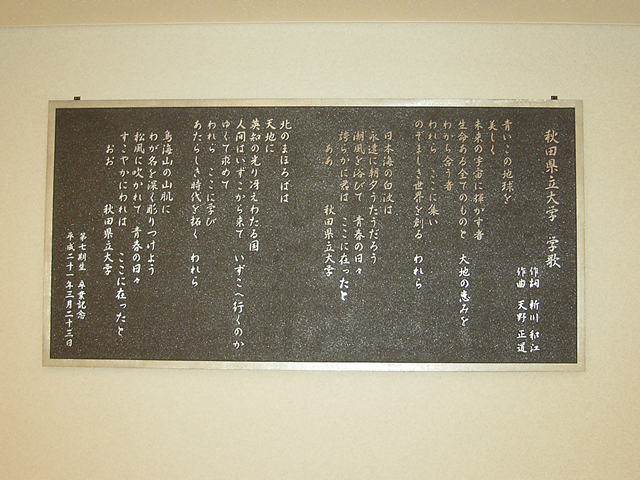 秋田県立大学 学歌
作詞 新川 和江
作曲 天野 正道
青いこの地球を
美しく
未来の宇宙に輝かす者
生命ある全てのものと 大地の恵みを
わかち合う者
われら ここに集い
のぞましき世界を創る われら
日本海の白波は
永遠に朝夕うたうだろう
潮風を浴びて 青春の日々
誇らかに君は ここに在ったと
ああ 秋田県立大学
北のまほろばは
天地に
英知の光り冴えわたる国
人間はいずこから来て いずこへ行くのか
ゆくて求めて
われら ここに学び
あたらしき時代を拓く われら
鳥海山の山肌に
わが名を深く彫りつけよう
松風に吹かれて 青春の日々
すこやかにわれは ここに在ったと
おお 秋田県立大学
第七期生 卒業記念
平成二十一年三月二十三日